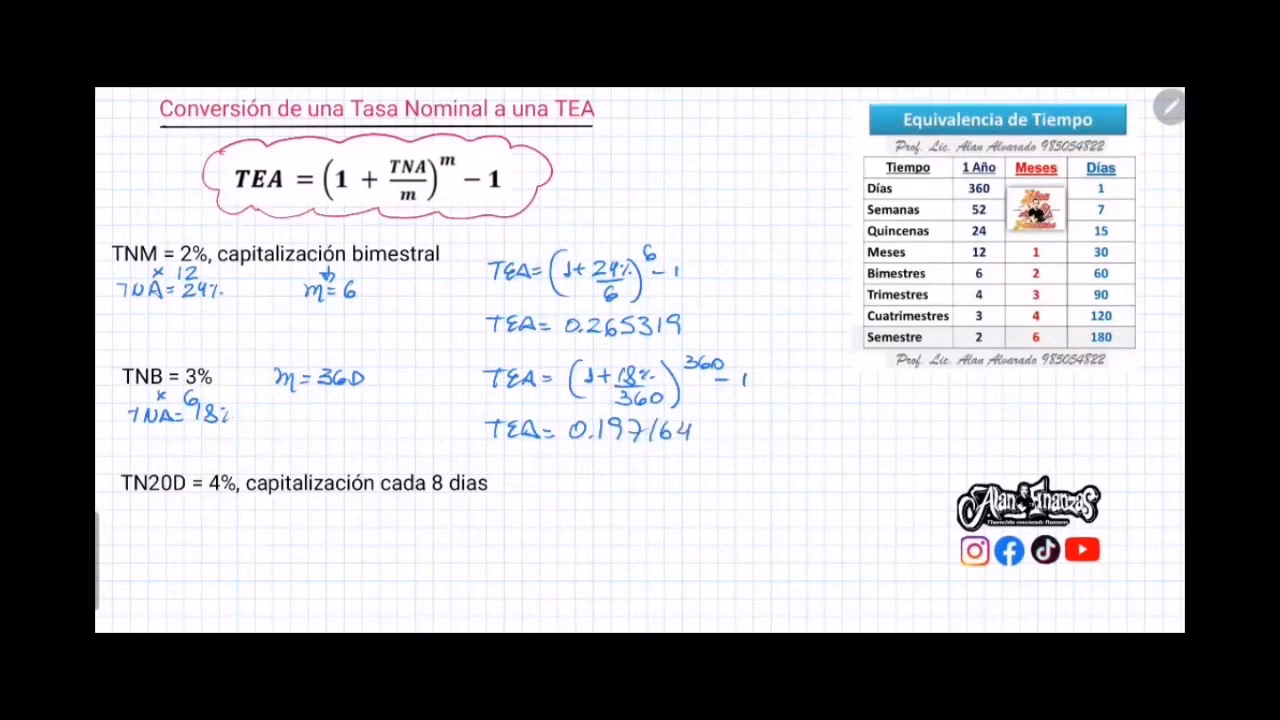 Conversión de una Tasa Nominal a una TEA
TEA = (1 + TNA/m)^m − 1
TNM = 2%, capitalización bimestral
x 12
TNA = 24%
m = 6
TEA = (1 + 24%/6)^6 − 1
TEA = 0.265319
TNB = 3%
x 6
TNA = 18%
m = 360
TEA = (1 + 18%/360)^360 − 1
TEA = 0.197164
TN20D = 4%, capitalización cada 8 dias
Equivalencia de Tiempo
Prof. Lic. Alan Alvarado 985054822
Tiempo 1 Año Meses Días
Días 360 1
Semanas 52 7
Quincenas 24 15
Meses 12 1 30
Bimestres 6 2 60
Trimestres 4 3 90
Cuatrimestres 3 4 120
Semestre 2 6 180
Prof. Lic. Alan Alvarado 985054822
Alan Finanzas